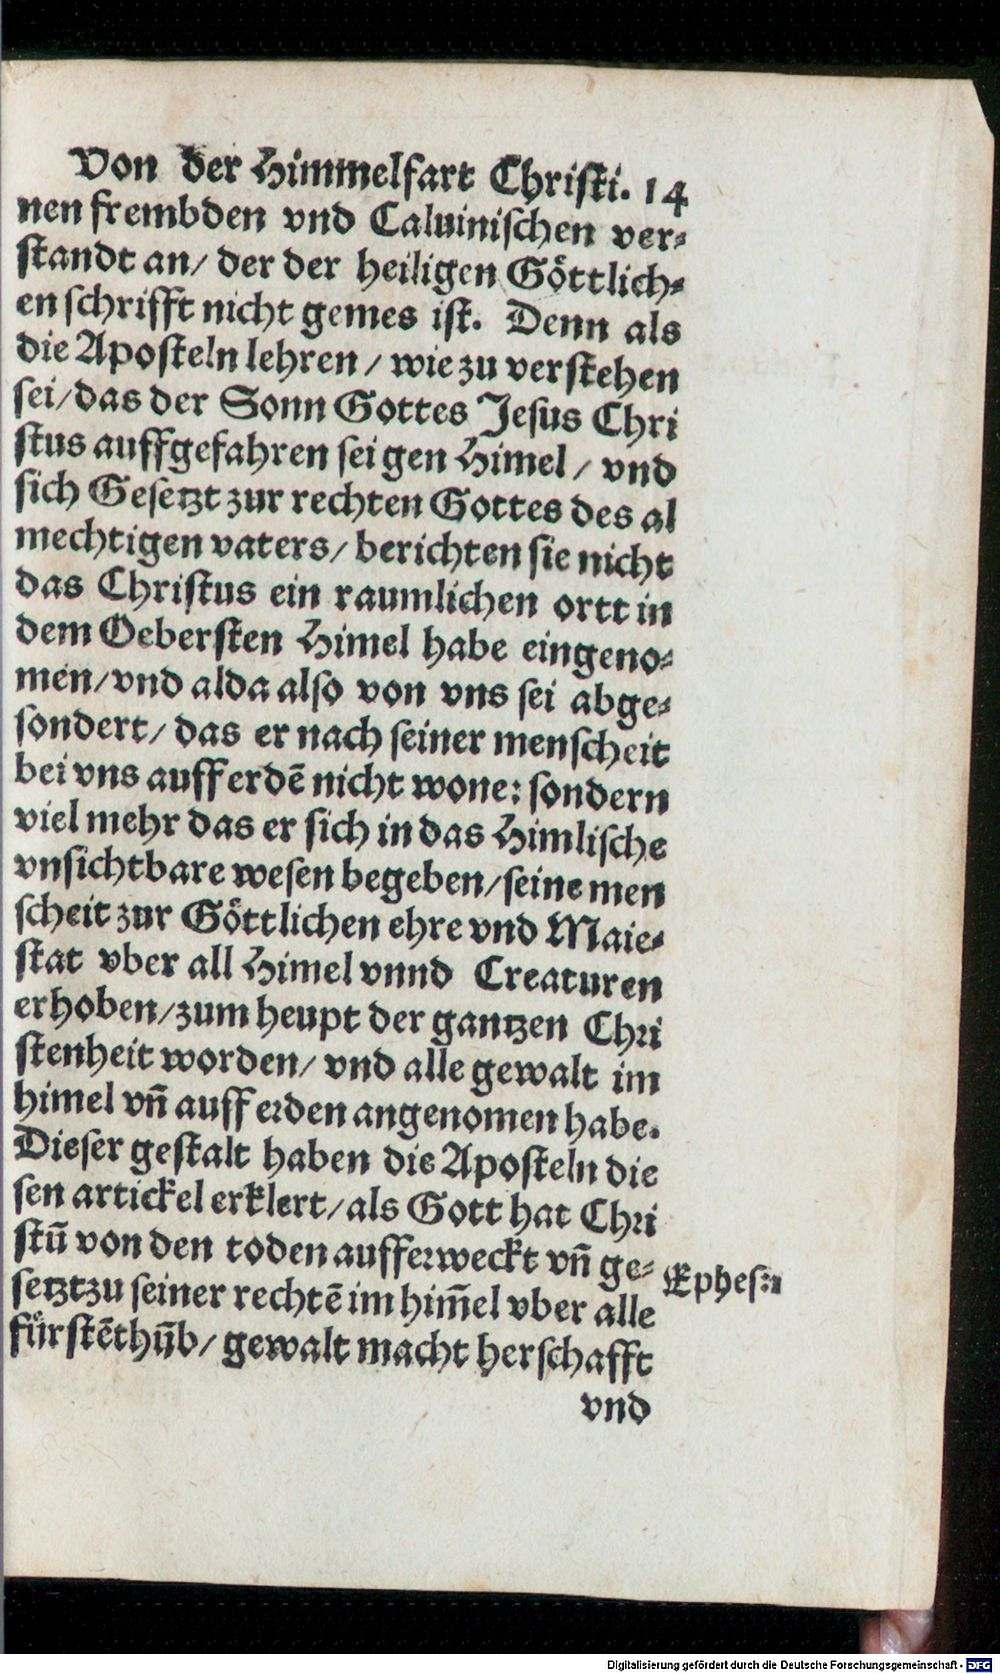 Von der Himmelfart Christi. 14
nen frembden vnd Caluinischen ver⸗
standt an/ der der heiligen Göttlich⸗
en schrifft nicht gemes ist. Denn als
die Aposteln lehren / wie zu verstehen
sei/das der Sonn Gottes Jesus Chri
stus auffgefahren sei gen Himel / vnd
sich Gesetzt zur rechten Gottes des al
mechtigen vaters/ berichten sie nicht
das Christus ein raumlichen ortt in
dem Oebersten Himel habe eingeno⸗
men/vnd alda also von vns sei abge⸗
sondert/ das er nach seiner menscheit
bei vns auff erdē nicht wone: sondern
viel mehr das er sich in das Himlische
vnsichtbare wesen begeben/seine men
scheit zur Göttlichen ehre vnd Maie⸗
stat vber all Himel vnnd Creaturen
erhoben/zum heupt der gantzen Chri
stenheit worden/ vnd alle gewalt im
himel vñ auff erden angenomen habe.
Dieser gestalt haben die Aposteln die
sen artickel erklert/als Gott hat Chri
stū von den toden aufferweckt vñ ge⸗
setzt zu seiner rechtē im him̄el vber alle
Ephes:1
fürstēthūb/ gewalt macht herschafft
vnd
Digitalisierung gefördert durch die Deutsche Forschungsgemeinschaft - DFG